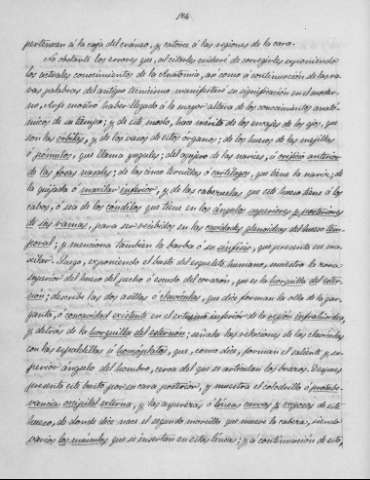 184
pertenecen á la caja del cráneo, y catorce á las regiones de la cara.
No obstante los errores que, al citarles cuidaré de corregirles exponiendo
los actuales conocimientos de la Anatomía, así como á continuacion de las ra-
ras palabras del antiguo tecnicismo manifestaré su significacion en el moder-
no,
nuestro haber llegado á la mayor altura de los conocimientos anató-
micos de su tiempo; y de este modo, hace mérito de los de los ojos, que
son las órbitas, y de los vasos de estos órganos; de los huesos de las mejillas
ó pómulos, que llama yugales; del agujero de las narices, ó orificio anterior
de las fosas nasales; de las cinco ternillas ó cartílagos, que tiene la nariz; de
la quijada ó maxilar inferior, y de las cabezuelas que este hueso tiene á los
cabos, ó sea de los cóndilos que tiene en los ángulos superiores y posteriores
de sus ramas, para ser recibidos en las cavidades glenoideas del hueso tem-
poral; y menciona tambien la barba ó su sínfisis, que presenta en ma-
xilar. Luego, exponiendo el busto del esqueleto humano, muestra la zona
superior del hueso del pecho ó escudo del corazón, que es la horquilla del ester-
nón; describe las dos asillas ó clavículas, que dice forman la olla de la gar-
ganta, ó concavidad existente en el extremo inferior de la region infrahioidea,
y detrás de la horquilla del esternón; señala las relaciones de las clavículas
con las espaldillas ó homóplatos, que, como dice, forman el saliente y su-
perior ángulo del hombro, cerca del que se articulan los brazos. Despues
presenta este busto por su cara posterior, y muestra el colodrillo ó protube-
rancia occipital externa, y las asperezas ó líneas curvas y rugosas de este
hueso, de donde dice nace el segundo morcillo que mueve la cabeza, siendo
varios los músculos que se insertan en estas líneas; y á continuacion de esto,